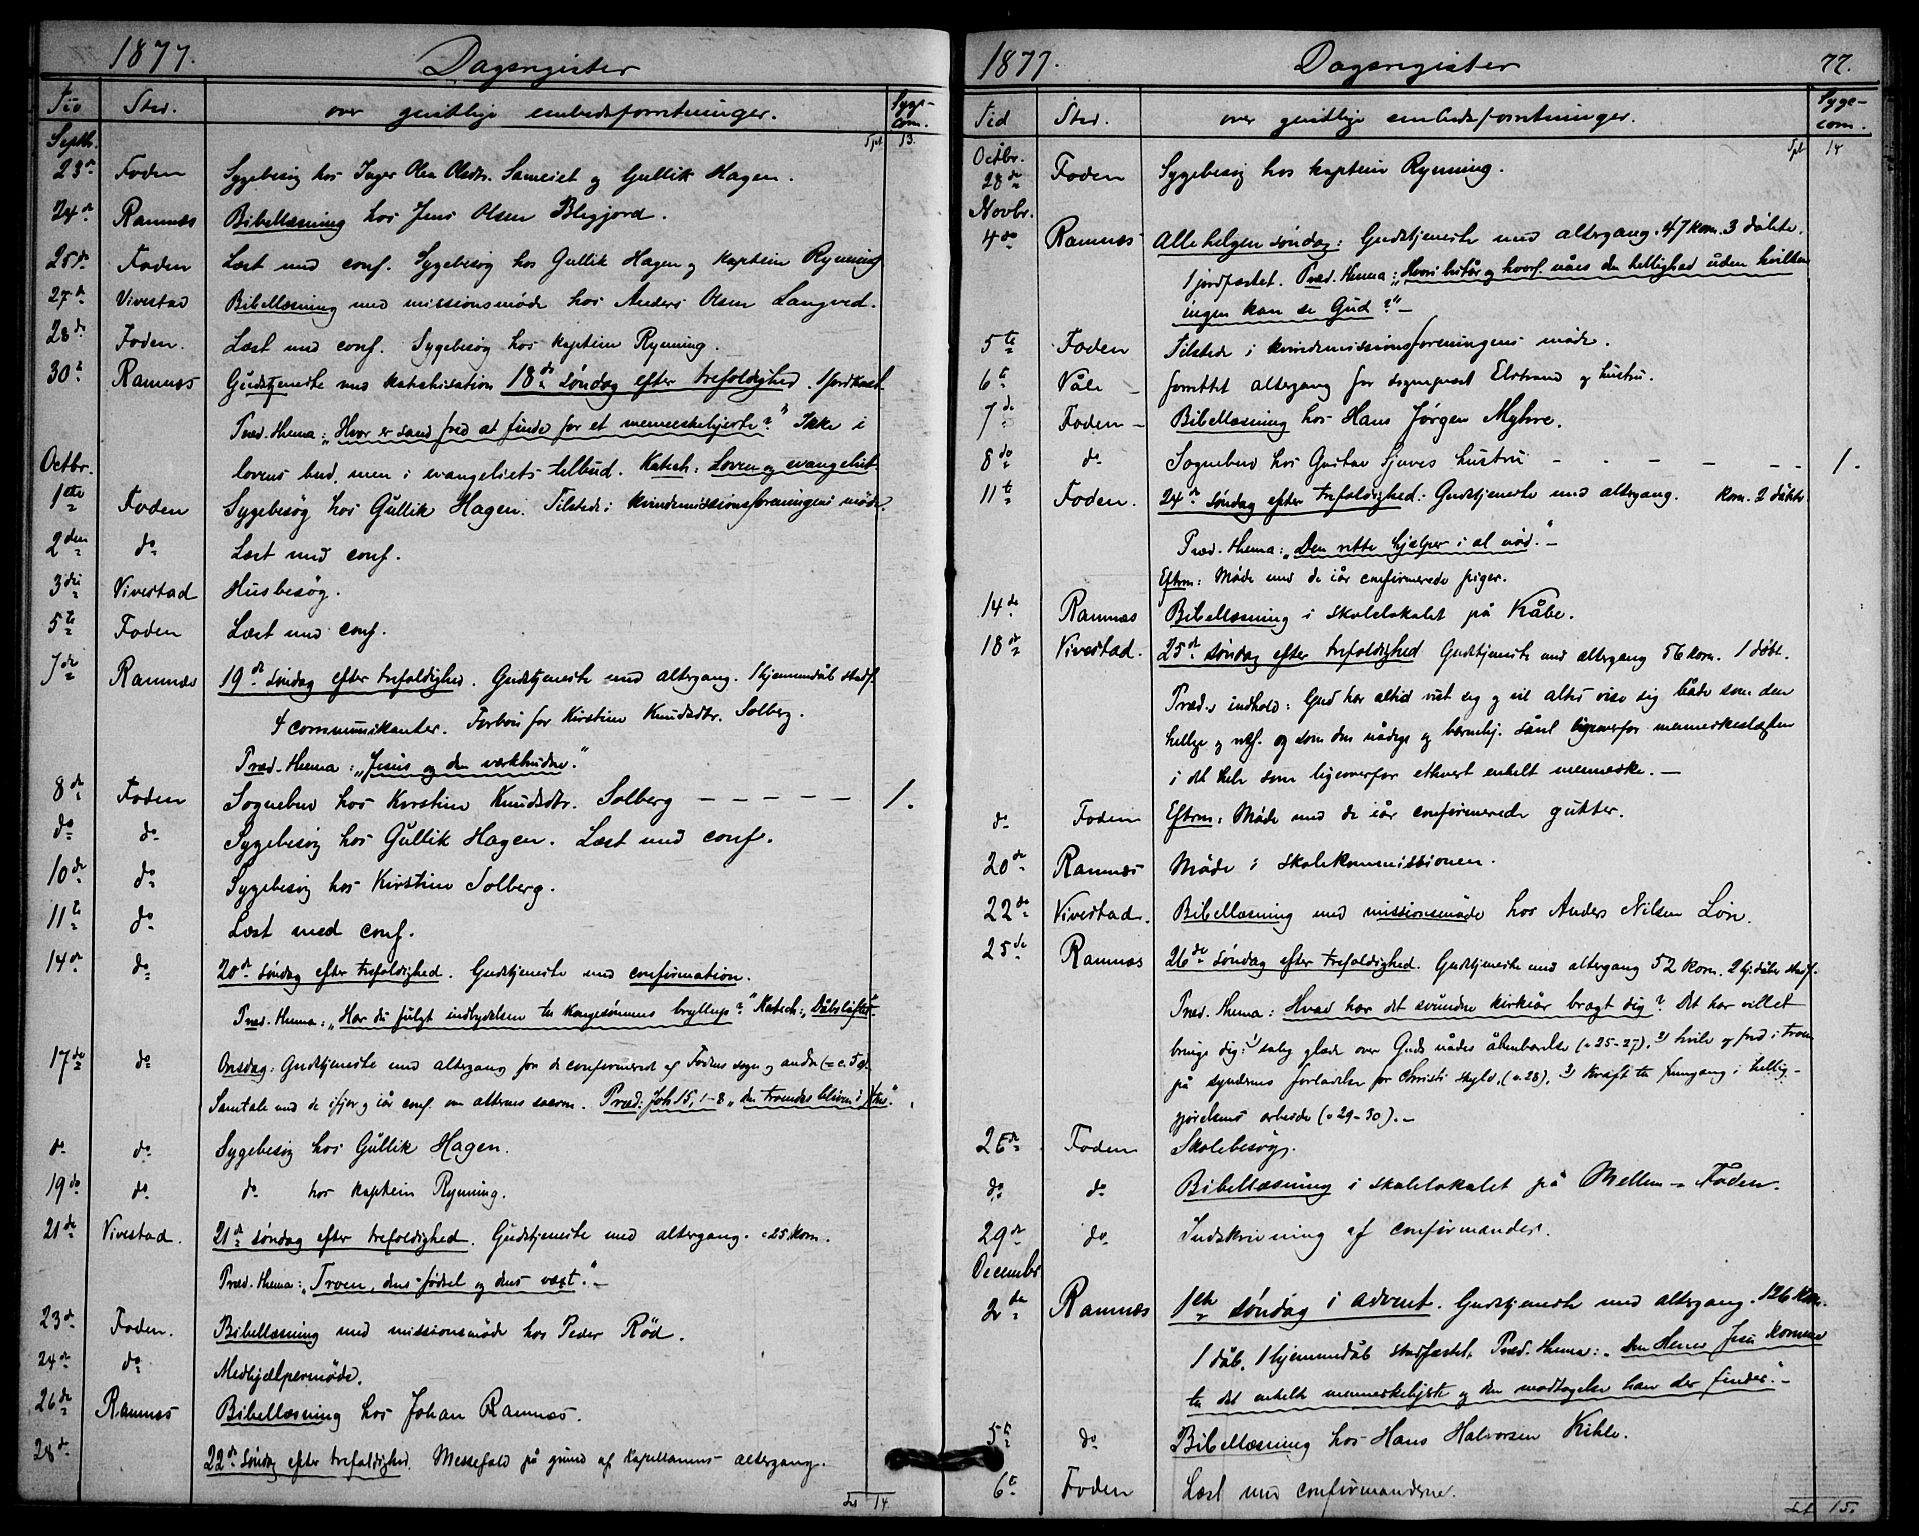 1877. Dagsregister
Tid Sted. over geistlige embedsforretninger. Syge-
com.
Septbr. Tpt 13.
23de Foden Sygebesøg hos Inger Olea Olsdtr. Sameiet og Gullik Hagen.
24de Ramnæs Bibellæsning hos Jens Olsen Blegjord.
25de Foden Læst med conf. Sygebesøg hos Gullik Hagen og kaptein Rynning
27de Vivestad Bibellæsning med missionsmøde hos Anders Olsen Langved.
28de Foden. Læst med conf. Sygebesøg hos kaptein Rynning.
30te Ramnæs Gudstjeneste med katekisation 18de søndag efter trefoldighed. 1 jordkast.
Præd. thema: "Hvor er sand fred at finde for et menneskehjerte?" Ikke i
Octbr. lovens bud, men i evangeliets tilbud. Katech: Loven og evangeliet
1ste Foden Sygebesøg hos Gullik Hagen. Tilstede i kvindemissionsforeningens møde.
2den do Læst med conf.
3die Vivestad Husbesøg.
5te Foden Læst med conf.
7de Ramnæs 19de søndag efter trefoldighed. Gudstjeneste med altergang. 1 hjemmedåb stadf.
4 communikanter. Forbøn for Kirstine Knudsdtr. Solberg.
Præd. thema: "Jesus og den værkbrudne."
8de Foden Sognebud hos Kirstine Knudsdtr. Solberg – – – – – 1.
do do Sygebesøg hos Gullik Hagen. Læst med conf.
10de do Sygebesøg hos Kirstine Solberg.
11te do Læst med conf.
14de do 20de søndag efter trefoldighed. Gudstjeneste med confirmation.
Præd. thema: "Har du fulgt indbydelsen til kongesønnens bryllup?" Katech: "Dåbsløftet"
17de do Onsdag: Gudstjeneste med altergang for de confirmerede af Fodens sogn og andre (= c. 50).
Samtale med de ifjor og iår conf. om alterens sacram. Præd: Joh 15, 1–8 "de troendes bliven i Xtus."
do do Sygebesøg hos Gullik Hagen.
19de do do hos kaptein Rynning.
21de Vivestad. 21de søndag efter trefoldighed. Gudstjeneste med altergang. 25 kom.
Præd. thema: "Troen, dens fødsel og dens væxt." –
23de Foden. Bibellæsning med missionsmøde hos Peder Rød.
24de do Medhjælpermøde.
26de Ramnæs Bibellæsning hos Johan Ramnæs.
28de 22de søndag efter trefoldighed. Messefald på grund af kapellanens altergang.
Lat 14
1877. Dagsregister 77.
Tid Sted. over geistlige embedsforretninger. Syge-
com.
Octbr. Tpt 14
28de Foden Sygebesøg hos kaptein Rynning.
Novbr.
4de Ramnæs Allehelgen søndag: Gudstjeneste med altergang. 47 kom. 3 døbte.
1 jordfæstet. Præd. thema: "Hvori består og hvorl. nåes den hellighed uden hvilken
ingen kan se Gud?" –
5te Foden Tilstede i kvindemissionsforeningens møde.
6te Våle – forrettet altergang for sogneprest Elstrand og hustru.
7de Foden – Bibellæsning hos Hans Jørgen Myhre.
8de do Sognebud hos Gustav Sjuves hustru – – – – – 1.
11te Foden. 24de søndag efter trefoldighed: Gudstjeneste med altergang. kom. 2 døbte
Præd. thema: "Den rette hjælper i al nød." –
Eftrm: Møde med de iår confirmerede piger.
14de Ramnæs Bibellæsning i skolelokalet på Kåbe.
18de Vivestad. 25de søndag efter trefoldighed Gudstjeneste med altergang 56 kom. 1 døbt.
Præd.s indhold: Gud har altid vist sig og vil altid vise sig både som den
hellige og retf. og som den nådige og barmhj. såvel ligeoverfor menneskeslægten
i det hele som ligeoverfor ethvert enkelt menneske. –
do Foden Eftrm: Møde med de iår confirmerede gutter.
20de Ramnæs Møde i skolekommissionen.
22de Vivestad. Bibellæsning med missionsmøde hos Anders Nilsen Løn.
25de Ramnæs 26de søndag efter trefoldighed. Gudstjeneste med altergang 52 kom. 2 hj.dåber stadf.
Præd. thema: Hvad har det svundne kirkeår bragt dig? Det har villet
bringe dig: 1) salig glæde over Guds nådes åbenbarelse (v 25–27), 2) hvile og fred i troen
på syndernes forladelse for Christi skyld, (v. 28), 3) kraft til fremgang i hellig-
gjørelsens arbeide (v 29–30). –
26de Foden Skolebesøg.
do do Bibellæsning i skolelokalet på Mellem-Foden.
29de do Indskrivning af confirmander.
December
2de Ramnæs 1ste søndag i advent. Gudstjeneste med altergang. 126 kom.
1 dåb, 1 hjemmedåb stadfæstet. Præd. thema: "Den Herres Jesu komme
til det enkelte menneskehjerte og den modtagelse han der finder." –
5te do Bibellæsning hos Hans Halvorsen Kihle.
6te Foden Læst med confirmanderne.
Lat 15.